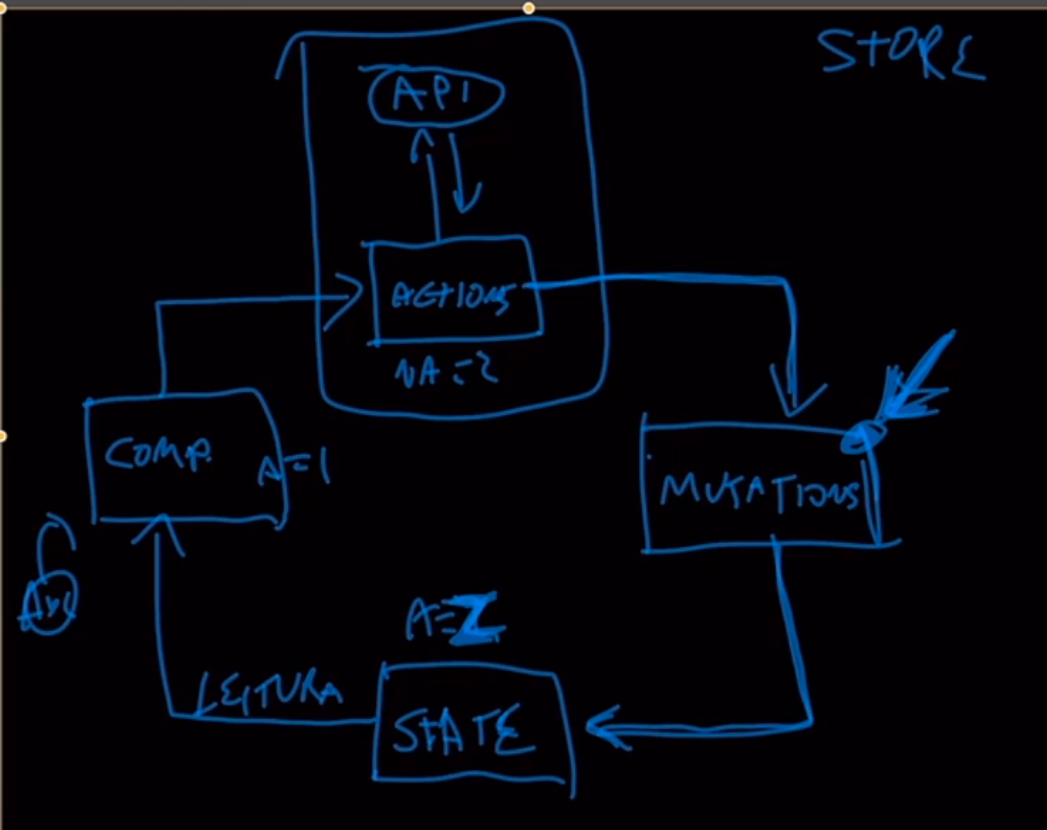 STORE
API
ACTIONS
NA=2
COMP.
A=1
MUTATIONS
A=2
LEITURA
STATE